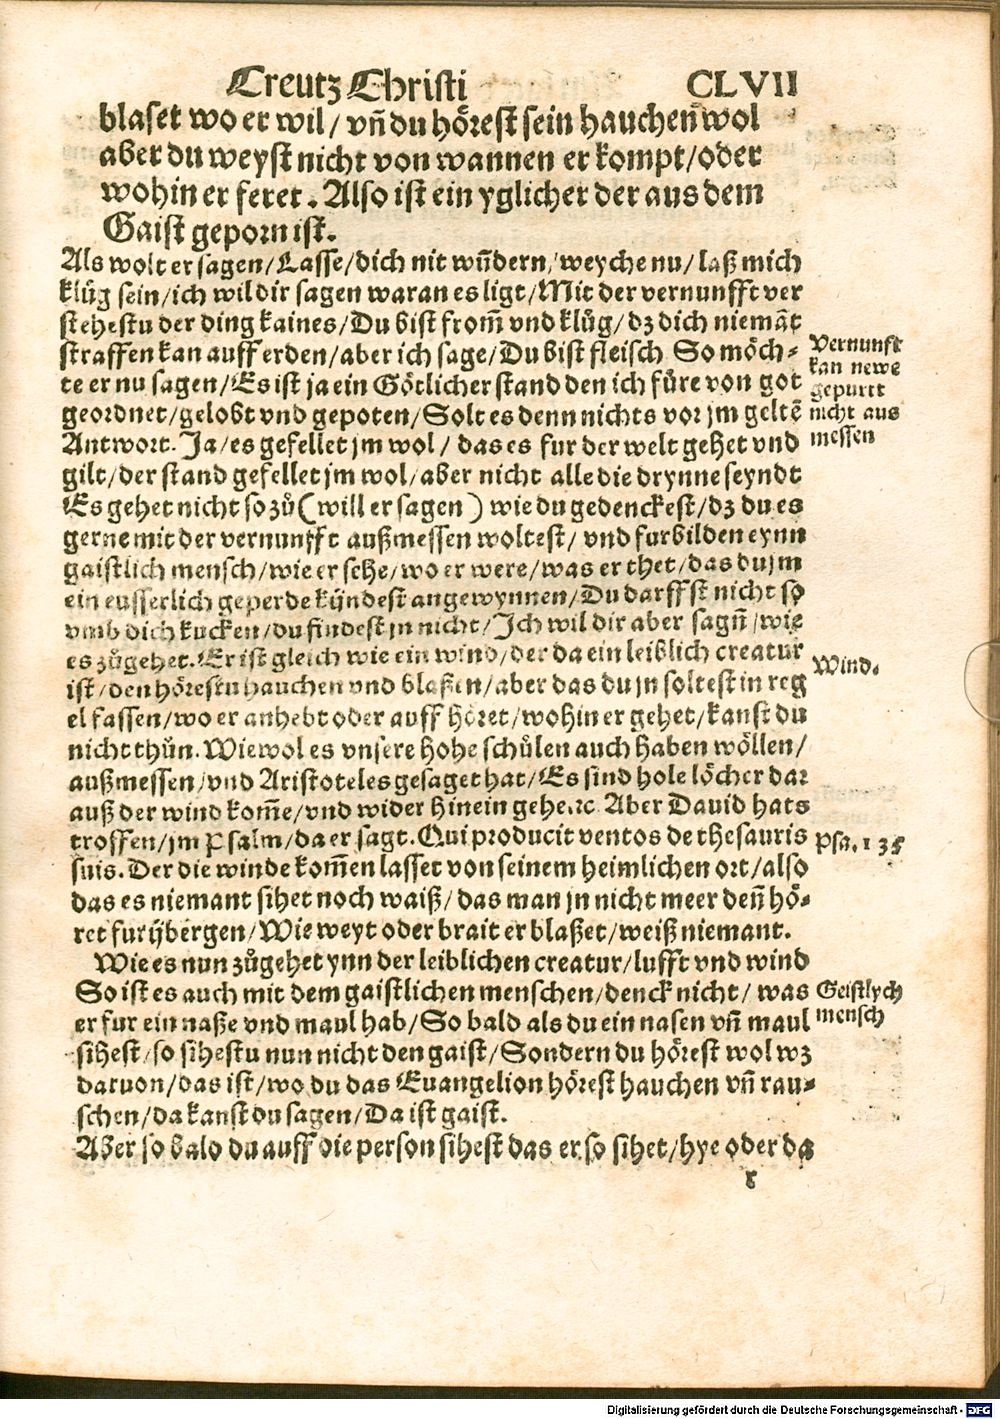 Creutz Christi CLVII
blaset wo er wil / vñ du hörest sein hauchen wol
aber du weyst nicht von wannen er kompt / oder
wohin er feret. Also ist ein yglicher der aus dem
Gaist geporn ist.
Als wolt er sagen / Lasse / dich nit wũdern / weyche nu / laß mich
klůg sein / ich wil dir sagen waran es ligt / Mit der vernunfft ver
stehestu der ding kaines / Du bist from̃ vnd klůg / dz dich niemãt
straffen kan auff erden / aber ich sage / Du bist fleisch So möch⸗
te er nu sagen / Es ist ja ein Götlicher stand den ich füre von got
geordnet / gelobt vnd gepoten / Solt es denn nichts vor jm geltẽ
Antwort. Ja / es gefellet jm wol / das es fur der welt gehet vnd
gilt / der stand gefellet jm wol / aber nicht alle die drynne seyndt
Es gehet nicht so zů (will er sagen) wie du gedenckest / dz du es
gerne mit der vernunfft außmessen woltest / vnd furbilden eynn
gaistlich mensch / wie er sehe / wo er were / was er thet / das du jm
ein eusserlich geperde kündest angewynnen / Du darffst nicht so
vmb dich kucken / du findest jn nicht / Ich wil dir aber sagñ / wie
es zůgehet. Er ist gleich wie ein wind / der da ein leiblich creatur
ist / den hörestu hauchen vnd blaßen / aber das du jn soltest in reg
el fassen / wo er anhebt oder auff höret / wohin er gehet / kanst du
nicht thůn. Wiewol es vnsere hohe schůlen auch haben wöllen /
außmessen / vnd Aristoteles gesaget hat / Es sind hole löcher dar
auß der wind kom̃e / vnd wider hinein gehe. ꝛc. Aber Dauid hats
troffen / jm Psalm / da er sagt. Qui producit ventos de thesauris
suis. Der die winde kom̃en lasset von seinem heimlichen ort / also
das es niemant sihet noch waiß / das man jn nicht meer deñ hö⸗
ret furüberge̲n / Wie weyt oder brait er blaßet / weiß niemant.
Wie es nun zůgehet ynn der leiblichen creatur / lufft vnd wind
So ist es auch mit dem gaistlichen menschen / denck nicht / was
er fur ein naße vnd maul hab / So bald als du ein nasen vñ maul
sihest / so sihestu nun nicht den gaist / Sondern du hörest wol wz
daruon / das ist / wo du das Euangelion hörest hauchen vñ rau⸗
schen / da kanst du sagen / Da ist gaist.
Aber so bald du auff die person sihest das er so sihet / hye oder da
r
Vernunft
kan newe
gepurtt
nicht aus
messen
Wind.
Psa. 135
Geistlych
mensch
Digitalisierung gefördert durch die Deutsche Forschungsgemeinschaft - DFG